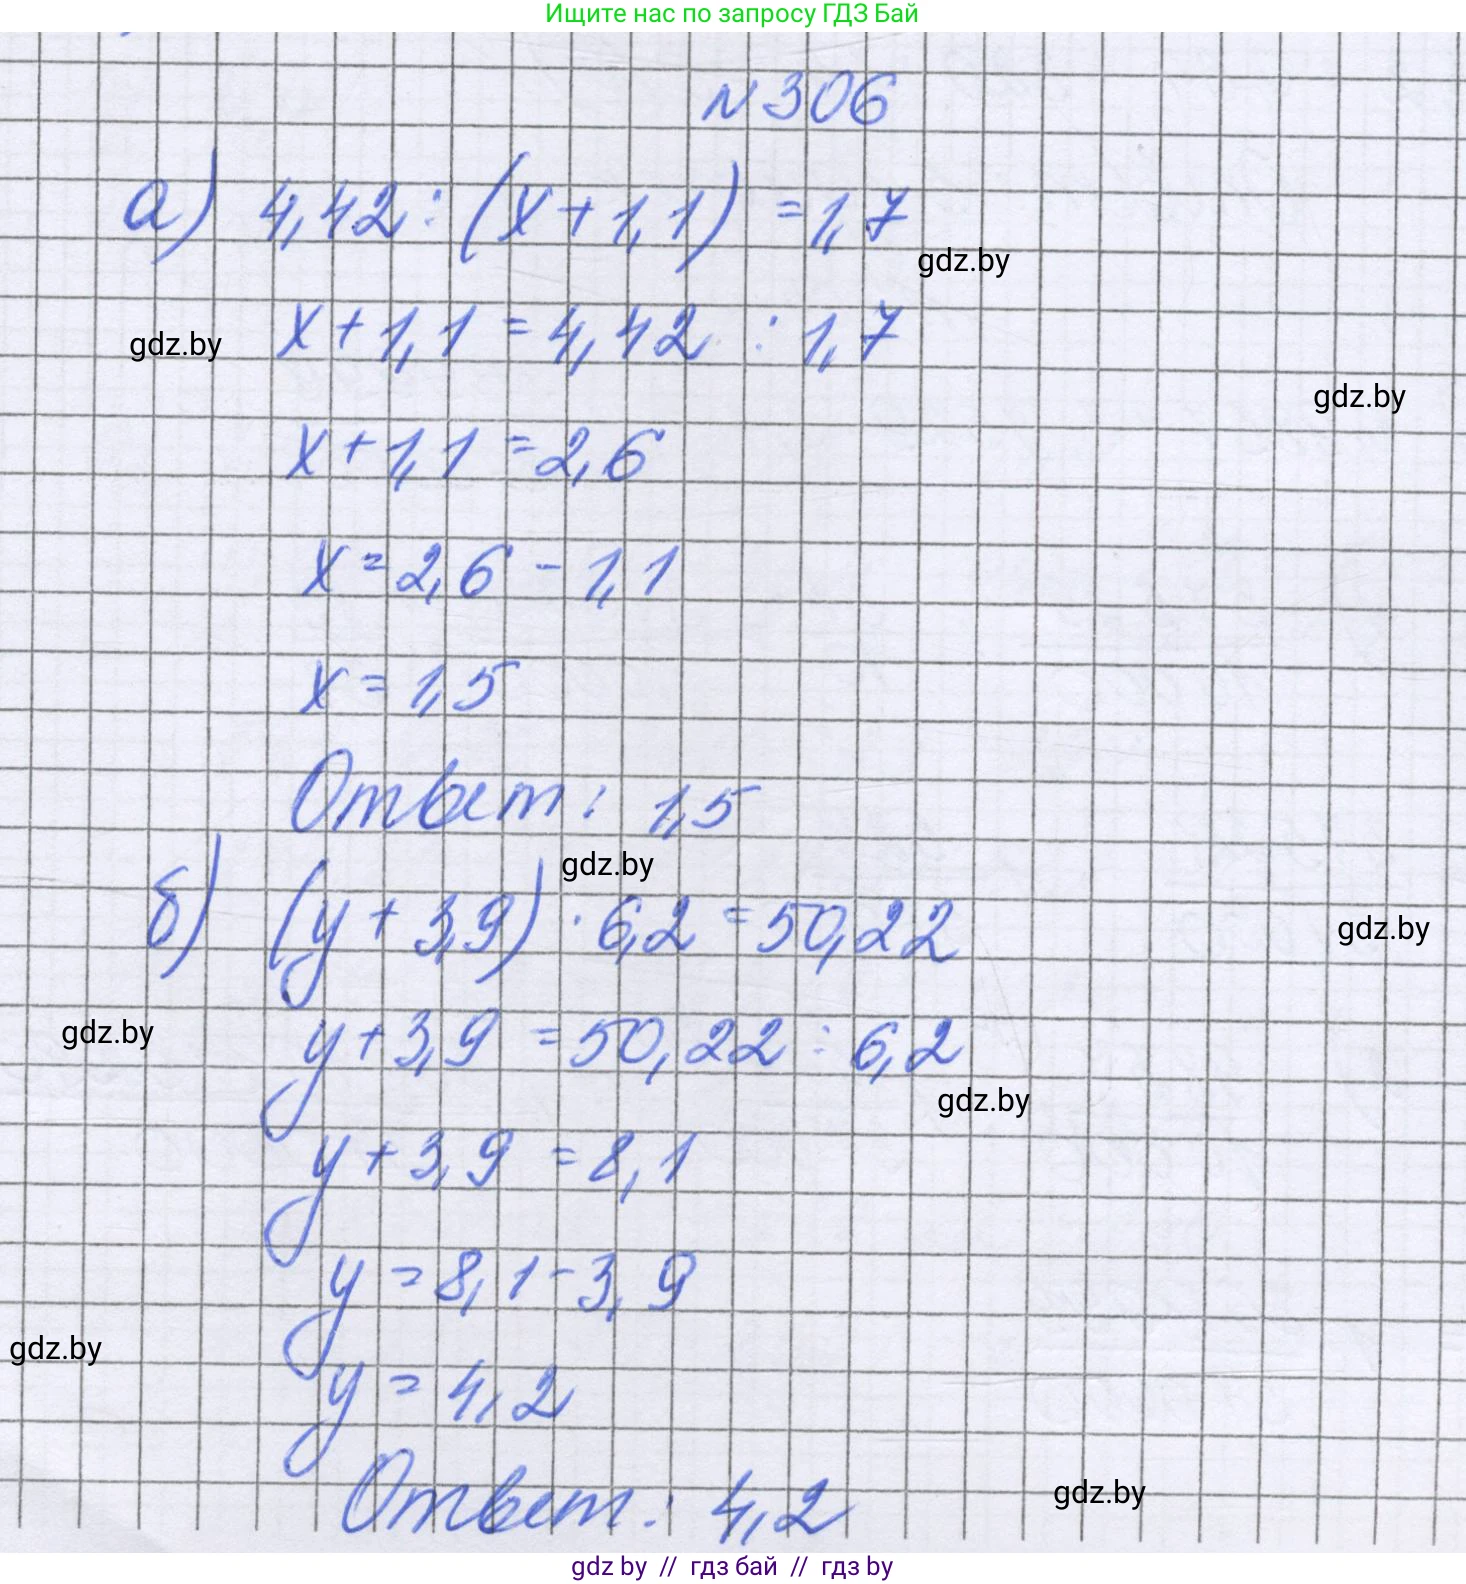 Ищите нас по запросу ГДЗ Бай
N 306
а) 4,42 : (x + 1,1) = 1,7
gdz.by
x + 1,1 = 4,42 : 1,7
gdz.by
gdz.by
x + 1,1 = 2,6
x = 2,6 - 1,1
x = 1,5
Ответ: 1,5
gdz.by
б) (y + 3,9) · 6,2 = 50,22
gdz.by
y + 3,9 = 50,22 : 6,2
gdz.by
gdz.by
y + 3,9 = 8,1
y = 8,1 - 3,9
gdz.by
y = 4,2
Ответ: 4,2
gdz.by
gdz by // гдз бай // гдз by